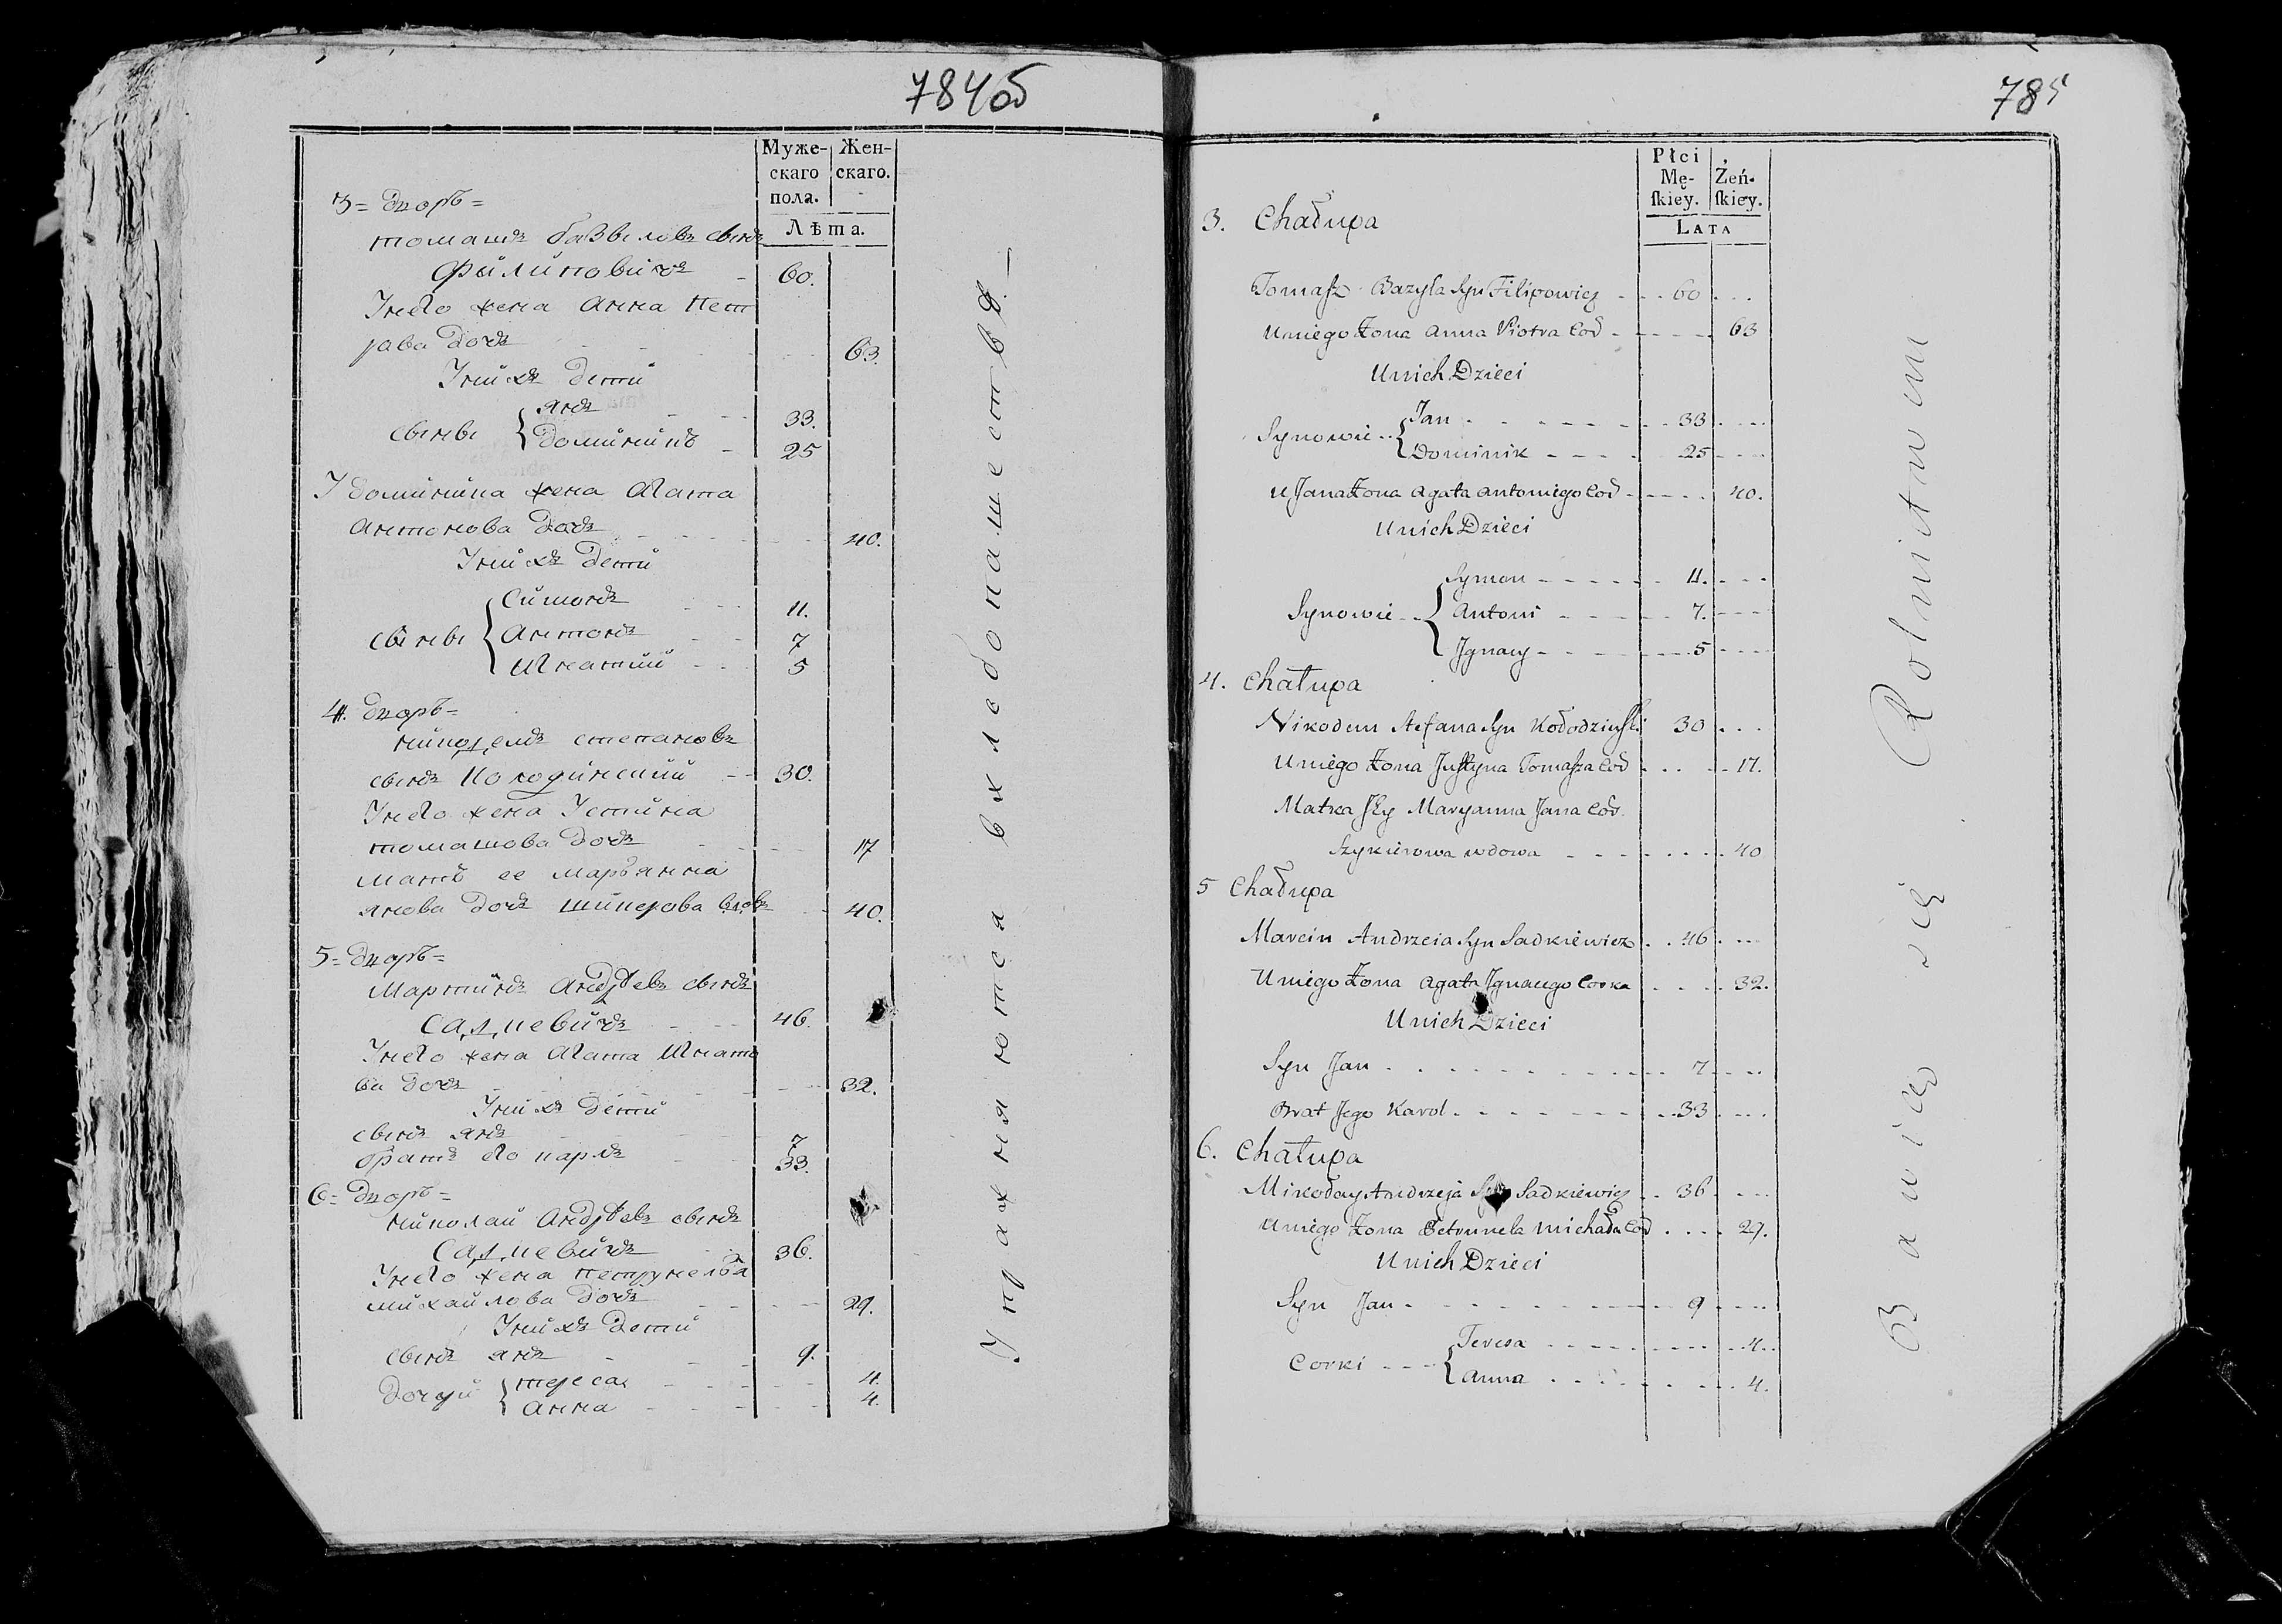 784об
Муже-
скаго
пола.
Жен-
скаго.
Лѣта.
3= дворъ=
томашъ базылевъ сынъ
Филиповичъ - 60.
У него жена Анна Пет
рова дочь 63.
У нихъ дети
сыны { янъ 33.
доминикъ 25
У доминика жена Агата
Антонова дочь 40.
У нихъ дети
сыны { Симонъ 11.
Антонъ 7
Игнатий 5
4. дворъ=
никодемъ степановъ
сынъ Колодинский 30.
У него жена Устина
томашова дочь 17
мать ее Маръянна
янова дочь шикерова вдова 40.
5= дворъ=
Мартинъ Андреевъ сынъ
Садкевичъ 46.
У него жена Агата Игнато
ва дочь 32.
У нихъ дети
сынъ янъ 7
братъ его карлъ 33.
6= дворъ=
николай Андреевъ сынъ
Садкевичъ 36.
У него жена петрунеля
михайлова дочь 29.
У нихъ дети
сынъ янъ 9.
дочери { тереса 4.
Анна 4.
Упражняются в хлебопашестве.
785
Płci
Mę-
ſkiey.
Żeń-
ſkiey.
LATA
3. Chałupa
Tomasz Bazyla Syn Filipowicz 60
U niego Żona Anna Piotra Cod 63
U nich Dzieci
Synowie { Jan 33
Dominik 25
U Jana Żona Agata Antoniego Cod 40.
U nich Dzieci
Synowie { Symon 11.
Antoni 7.
Jgnacy 5
4. Chałupa
Nikodem Stefana Syn Kołodzinski 30
U niego Żona Justyna Tomasza Cod 17.
Matka Jey Maryanna Jana Cod.
Szykierowa wdowa 40
5 Chałupa
Marcin Andrzeia Syn Sadkiewicz 46
U niego Żona Agata Jgnacego Corka 32.
U nich Dzieci
Syn Jan 7
Brat Jego Karol 33
6. Chałupa
Mikołay Andrzeja Syn Sadkiewicz 36
U niego Żona Petrunela Michała Cod 29.
U nich Dzieci
Syn Jan 9
Corki { Teresa 4.
Anna 4.
Bawią się Rolnictwem